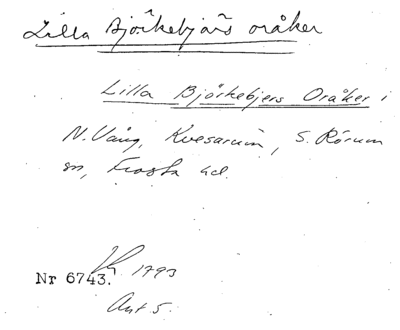 Lilla Björkebjärs oråker
Lilla Björkebjers Oråker i
N. Vång, Kvesarum, S. Rörum
sn, Frosta hd.
Nr 6743. 1793
Akt 5.